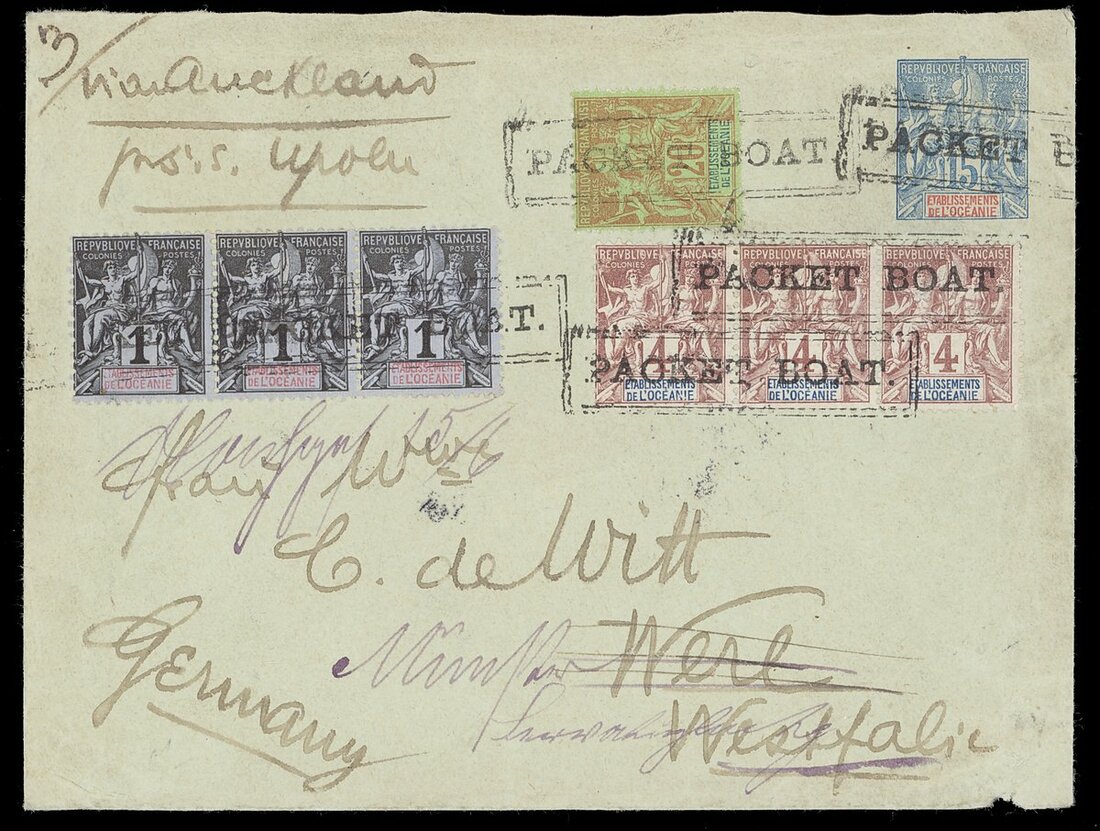 3
via Auckland
p. s.s. Upolu
REPVBLIQVE FRANÇAISE
COLONIES POSTES
15
ETABLISSEMENTS
DE L'OCÉANIE
PACKET B
20
ETABLISSEMENTS
DE L'OCÉANIE
PACKET BOAT
REPVBLIQVE FRANÇAISE
COLONIES POSTES
1
ETABLISSEMENTS
DE L'OCÉANIE
REPVBLIQVE FRANÇAISE
COLONIES POSTES
1
ETABLISSEMENTS
DE L'OCÉANIE
REPVBLIQVE FRANÇAISE
COLONIES POSTES
1
ETABLISSEMENTS
DE L'OCÉANIE
PACKET BOAT.
REPVBLIQVE FRANÇAISE
COLONIES POSTES
4
ETABLISSEMENTS
DE L'OCÉANIE
REPVBLIQVE FRANÇAISE
COLONIES POSTES
4
ETABLISSEMENTS
DE L'OCÉANIE
REPVBLIQVE FRANÇAISE
COLONIES POSTES
4
ETABLISSEMENTS
DE L'OCÉANIE
PACKET BOAT.
PACKET BOAT.
Frau Wwe
C. de Witt
Werl
Münster
Westfalie
Germany